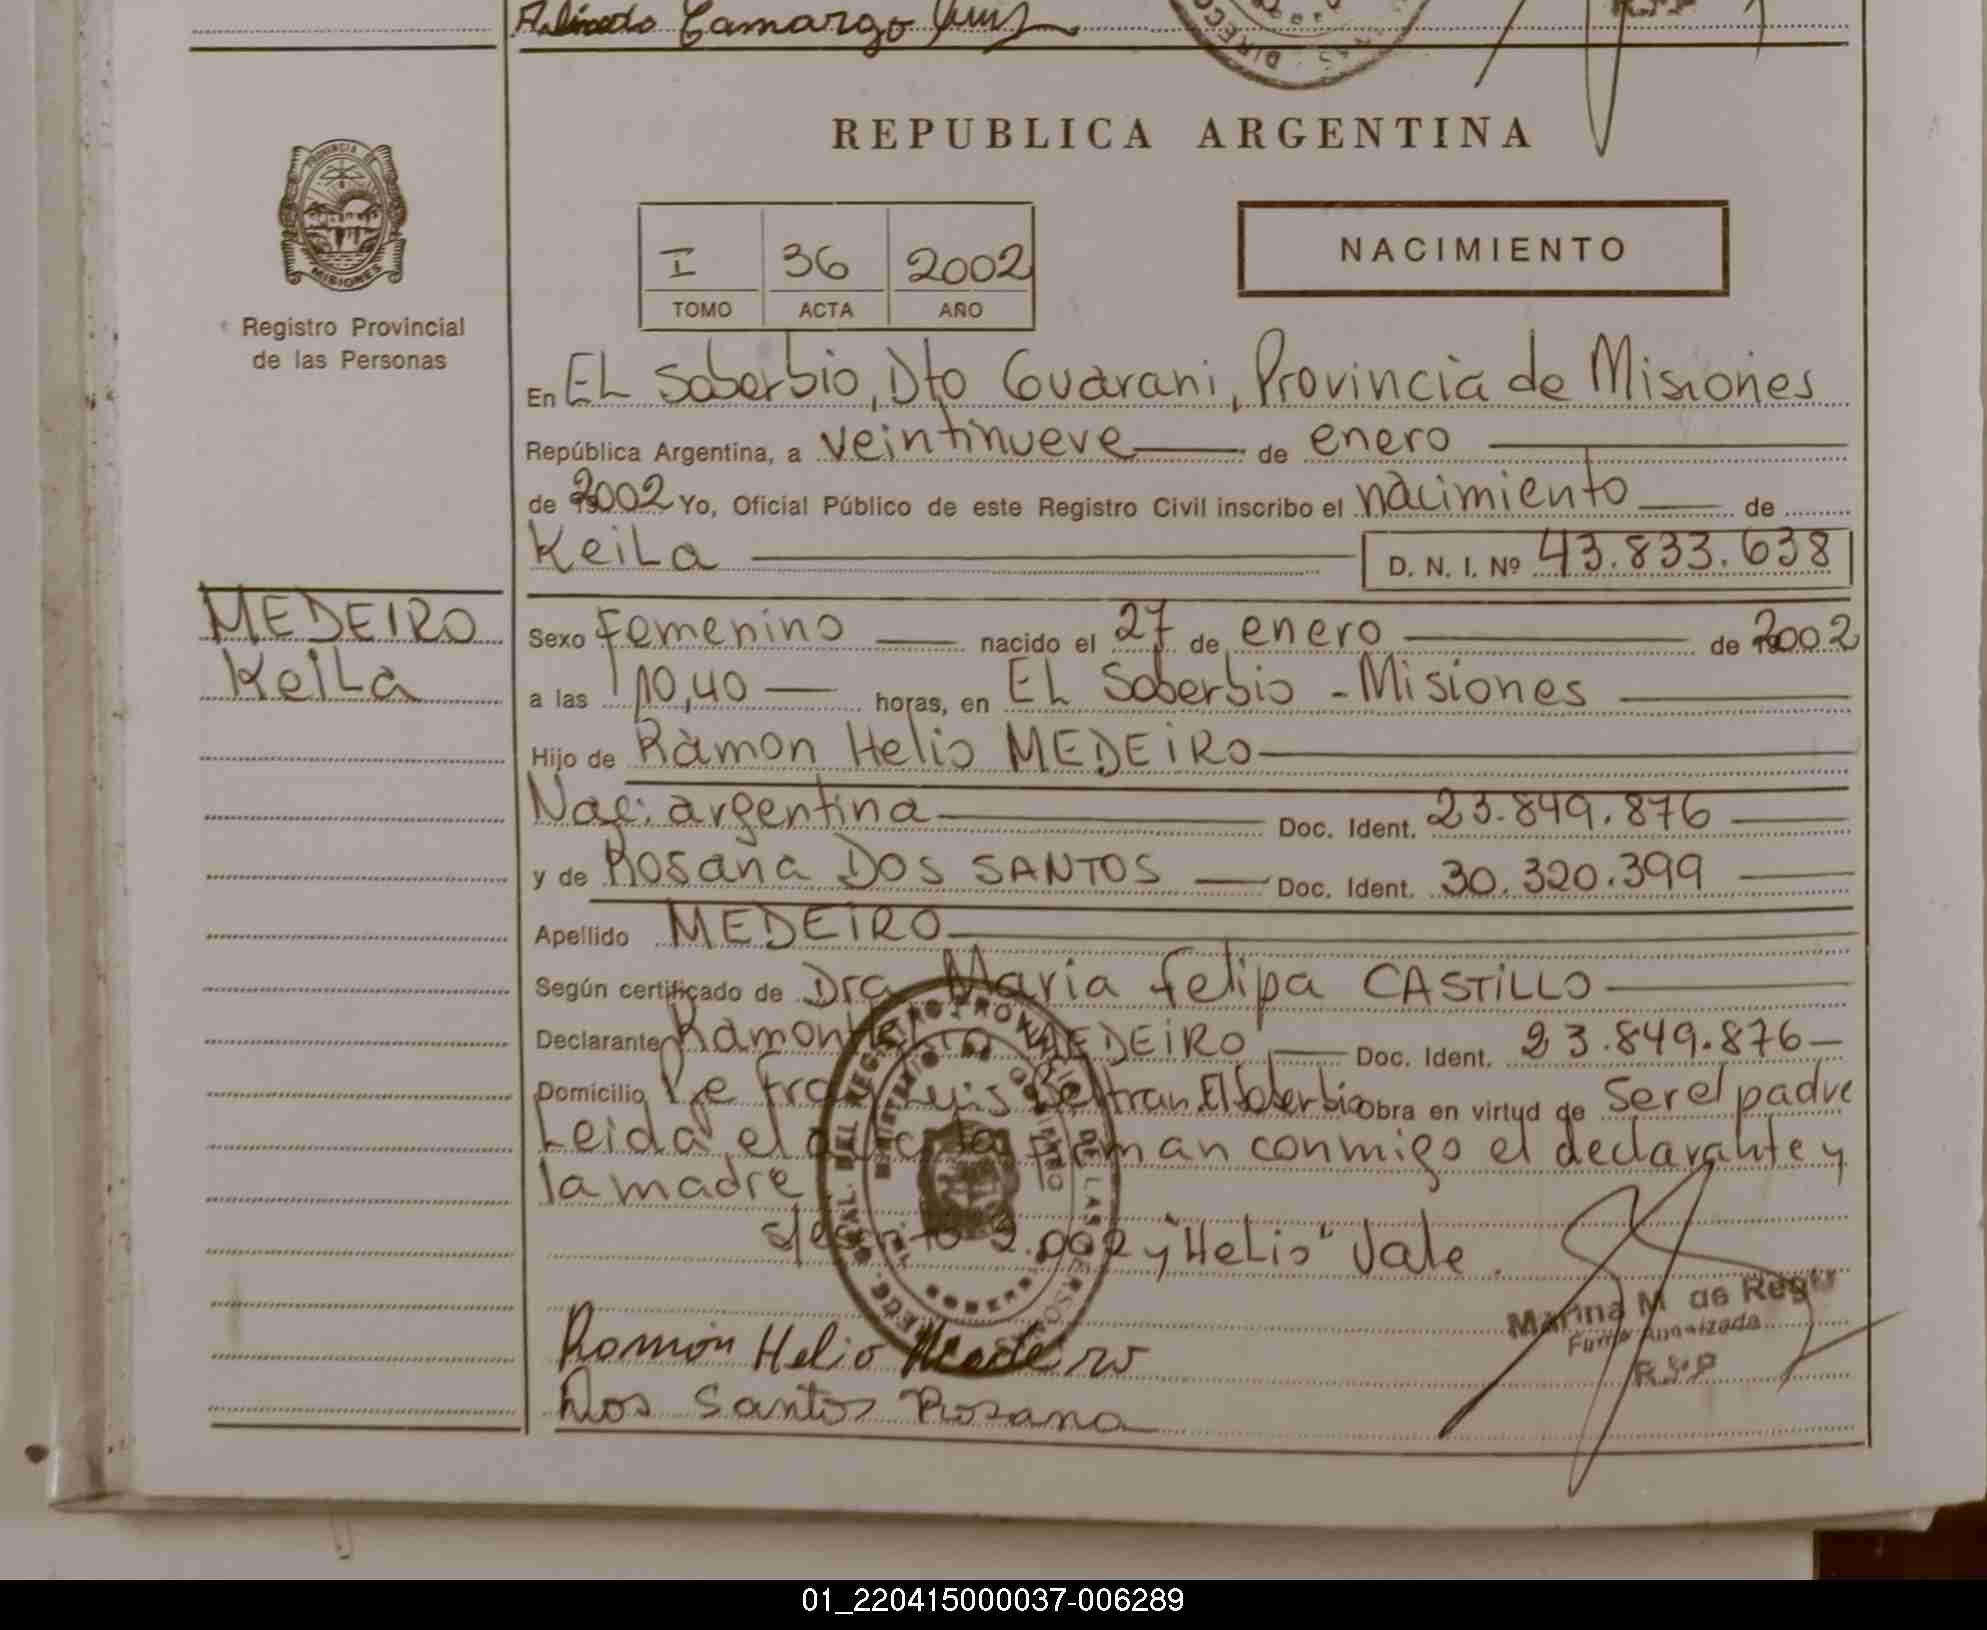 Camargo Luis
DIRECC
REPUBLICA ARGENTINA
PROVINCIA DE
MISIONES
Registro Provincial
de las Personas
I 36 2002
TOMO ACTA AÑO
NACIMIENTO
En EL Soberbio, Dto Guarani, Provincia de Misiones
República Argentina, a veintinueve de enero
de 2002 Yo, Oficial Público de este Registro Civil inscribo el nacimiento de
Keila D. N. I. Nº 43.833.638
MEDEIRO
Keila
Sexo Femenino nacido el 27 de enero de 2002
a las 10,40 horas, en EL Soberbio - Misiones
Hijo de Ramon Helio MEDEIRO
Nac: argentina Doc. Ident. 23.849.876
y de Rosana DOS SANTOS Doc. Ident. 30.320.399
Apellido MEDEIRO
Según certificado de Dra Maria Felipa CASTILLO
Declarante Ramon Helio MEDEIRO Doc. Ident. 23.849.876
Domicilio Luis Beltran El Soberbio obra en virtud de ser el padre
Leida el acta firman conmigo el declarante y
la madre
2.002 y "Helio" Vale.
Marina M de
R.P.
Ramón Helio Medeiro
Dos Santos Rosana
01_220415000037-006289